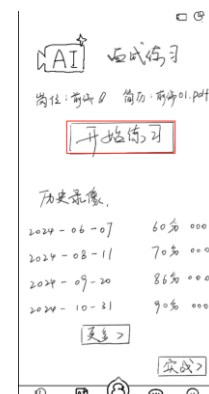 AI 面试练习
岗位：前端 简历：前端01.pdf
开始练习
历史录像.
2024-06-07 60分 ...
2024-08-11 70分 ...
2024-09-20 86分 ...
2024-10-31 90分 ...
更多 >
实战 >